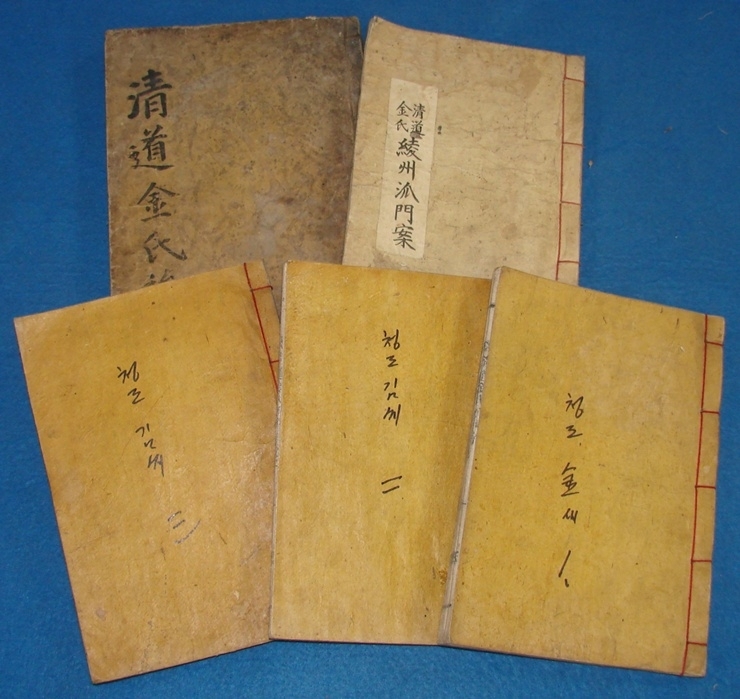 清道金氏
清道
金氏
綾州派門案
청도 김씨 三
청도 김씨 二
청도 金씨 一